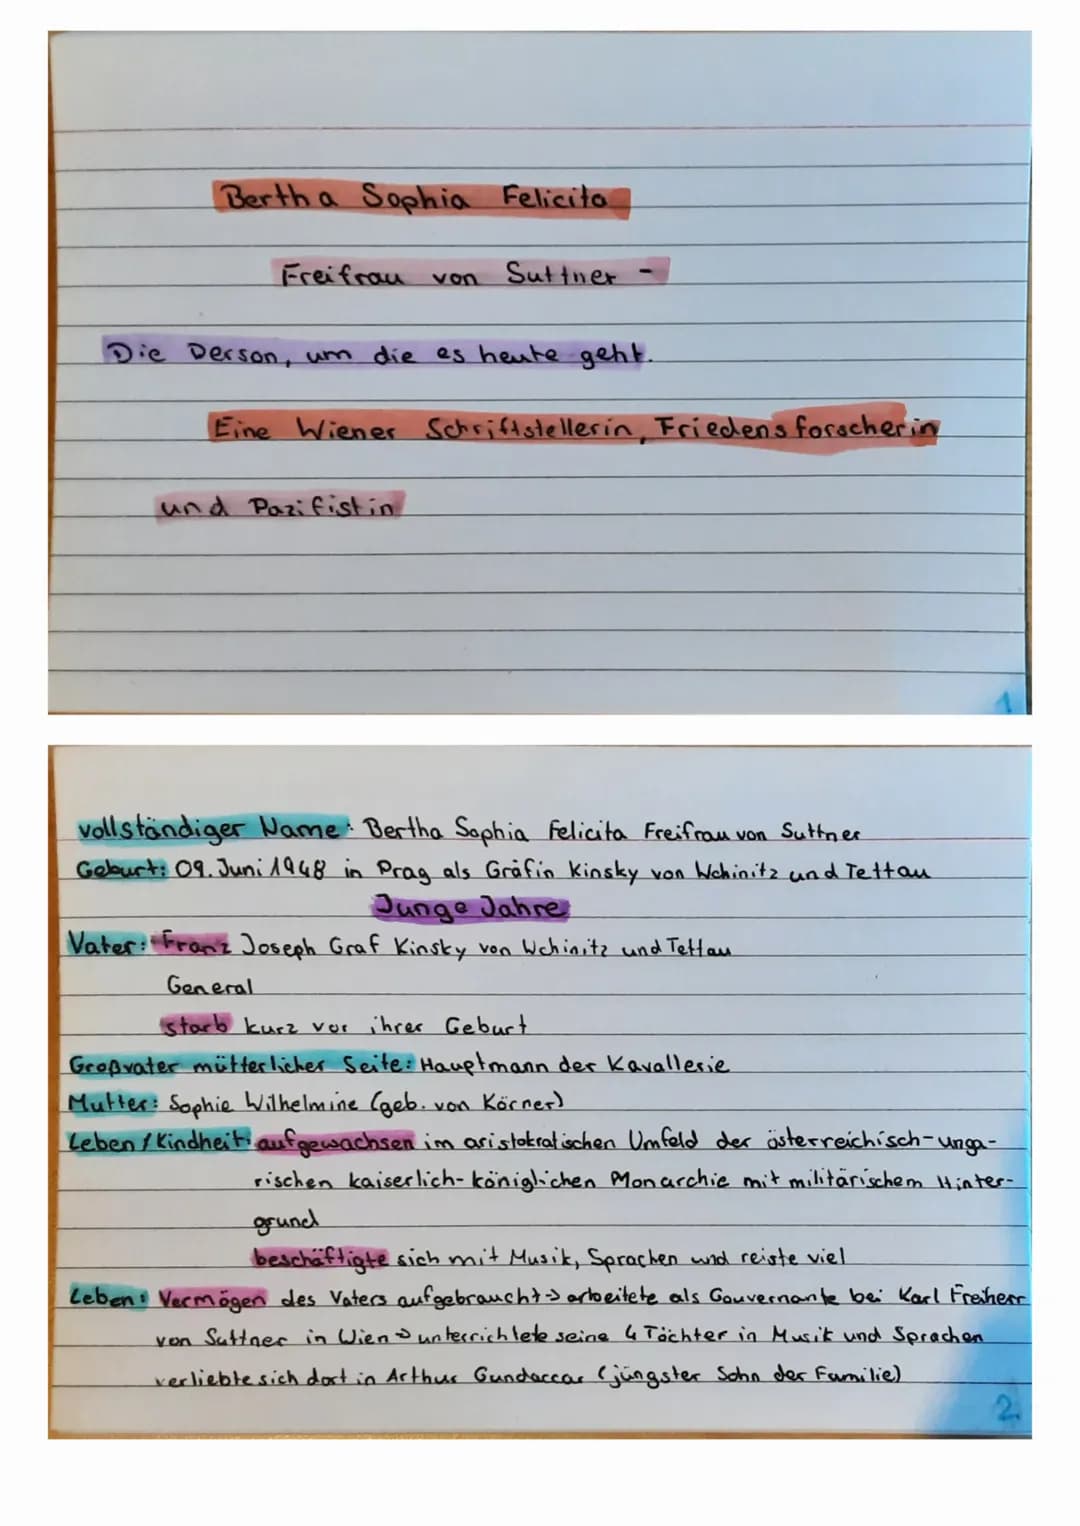 Bertha Sophia Felicita
Freifrau von Suttner -
Die Person, um die es heute geht.
Eine Wiener Schriftstellerin, Friedensforscherin
und Pazifistin
1
vollständiger Name: Bertha Sophia Felicita Freifrau von Suttner
Geburt: 09. Juni 1948 in Prag als Gräfin Kinsky von Wchinitz und Tettau
Junge Jahre
Vater: Franz Joseph Graf Kinsky von Wchinitz und Tettau
General
starb kurz vor ihrer Geburt
Großvater mütterlicher Seite: Hauptmann der Kavallerie
Mutter: Sophie Wilhelmine (geb. von Körner)
Leben / Kindheit: aufgewachsen im aristokratischen Umfeld der österreichisch-unga-
rischen kaiserlich-königlichen Monarchie mit militärischem Hinter-
grund
beschäftigte sich mit Musik, Sprachen und reiste viel
Leben: Vermögen des Vaters aufgebraucht → arbeitete als Gouvernante bei Karl Freiherr
von Suttner in Wien → unterrichtete seine 4 Töchter in Musik und Sprachen
verliebte sich dort in Arthur Gundaccar (jüngster Sohn der Familie)
2